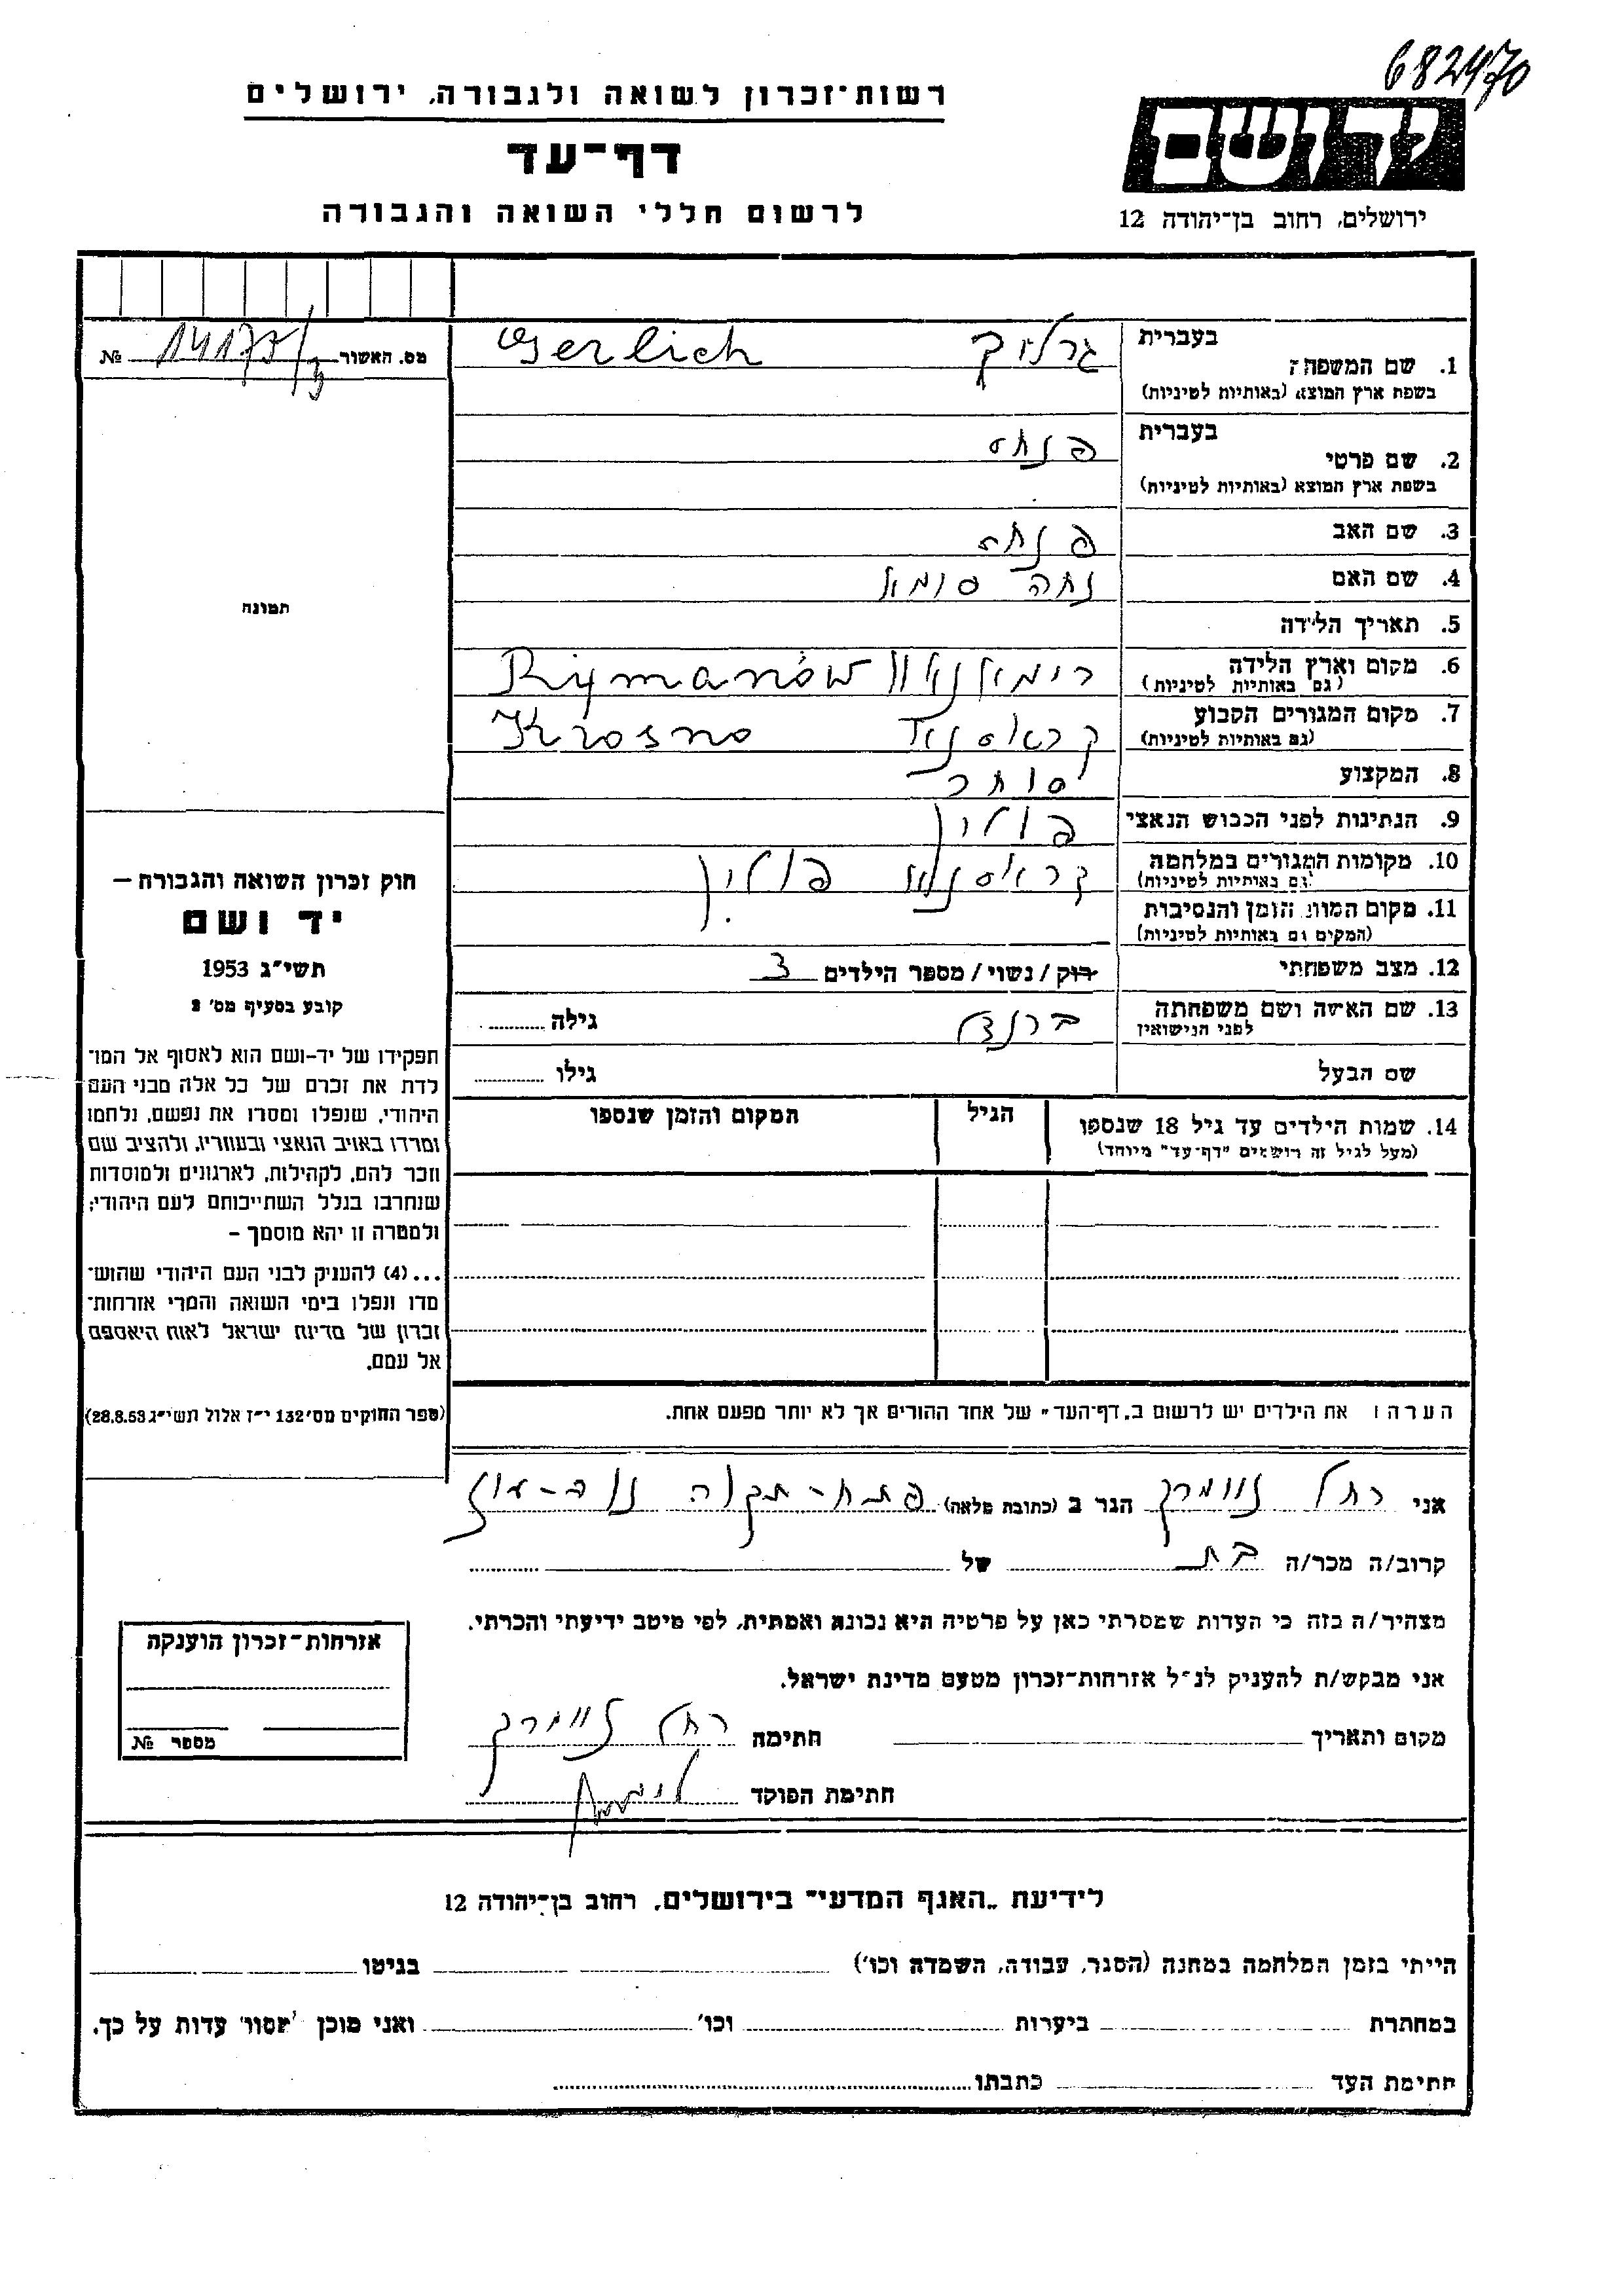 682470
רשות-זכרון לשואה ולגבורה, ירושלים
דף-עד
לרשום חללי השואה והגבורה
יד ושם
ירושלים, רחוב בן-יהודה 12
מס. האשור № 14175/3
תמונה
בעברית
1. שם המשפחה גרליך Gerlich
בשפת ארץ המוצא (באותיות לטיניות)
בעברית
2. שם פרטי פנחס
בשפת ארץ המוצא (באותיות לטיניות)
3. שם האב
4. שם האם
5. תאריך הלידה
6. מקום וארץ הלידה Rymanów
(גם באותיות לטיניות)
7. מקום המגורים הקבוע קראסנא Krosno
(גם באותיות לטיניות)
8. המקצוע סוחר
9. הנתינות לפני הכבוש הנאצי פולין
10. מקומות המגורים במלחמה קראסנא פולין
(גם באותיות לטיניות)
11. מקום המות, הזמן והנסיבות
(המקום גם באותיות לטיניות)
12. מצב משפחתי רוק/נשוי/מספר הילדים 3
13. שם האשה ושם משפחתה
לפני הנישואין גילה
שם הבעל גילו
14. שמות הילדים עד גיל 18 שנספו הגיל המקום והזמן שנספו
(מעל לגיל זה רושמים "דף-עד" מיוחד)
הערה: את הילדים יש לרשום ב„דף-העד" של אחד ההורים אך לא יותר מפעם אחת.
חוק זכרון השואה והגבורה —
יד ושם
תשי"ג 1953
קובע בסעיף מס' 2
תפקידו של יד-ושם הוא לאסוף אל המו־
לדת את זכרם של כל אלה מבני העם
היהודי, שנפלו ומסרו את נפשם, נלחמו
ומרדו באויב הנאצי ובעוזריו, ולהציב שם
וזכר להם, לקהילות, לארגונים ולמוסדות
שנחרבו בגלל השתייכותם לעם היהודי;
ולמטרה זו יהא מוסמך —
...(4) להעניק לבני העם היהודי שהוש־
מדו ונפלו בימי השואה והמרי אזרחות־
זכרון של מדינת ישראל לאות היאספם
אל עמם.
(ספר החוקים מס' 132 י"ז אלול תשי"ג 28.8.53)
אני רחל הגר ב (כתובת מלאה) פתח-תקוה
קרוב/ה מכר/ה בת של
מצהיר/ה בזה כי העדות שמסרתי כאן על פרטיה היא נכונה ואמתית, לפי מיטב ידיעתי והכרתי.
אני מבקש/ת להעניק לנ"ל אזרחות-זכרון מטעם מדינת ישראל.
מקום ותאריך חתימה רחל
חתימת הפוקד
אזרחות-זכרון הוענקה
מספר №
לידיעת „האגף המדעי" בירושלים, רחוב בן-יהודה 12
הייתי בזמן המלחמה במחנה (הסגר, עבודה, השמדה וכו') בגיטו
במחתרת ביערות וכו' ואני מוכן למסור עדות על כך.
חתימת העד כתבתו